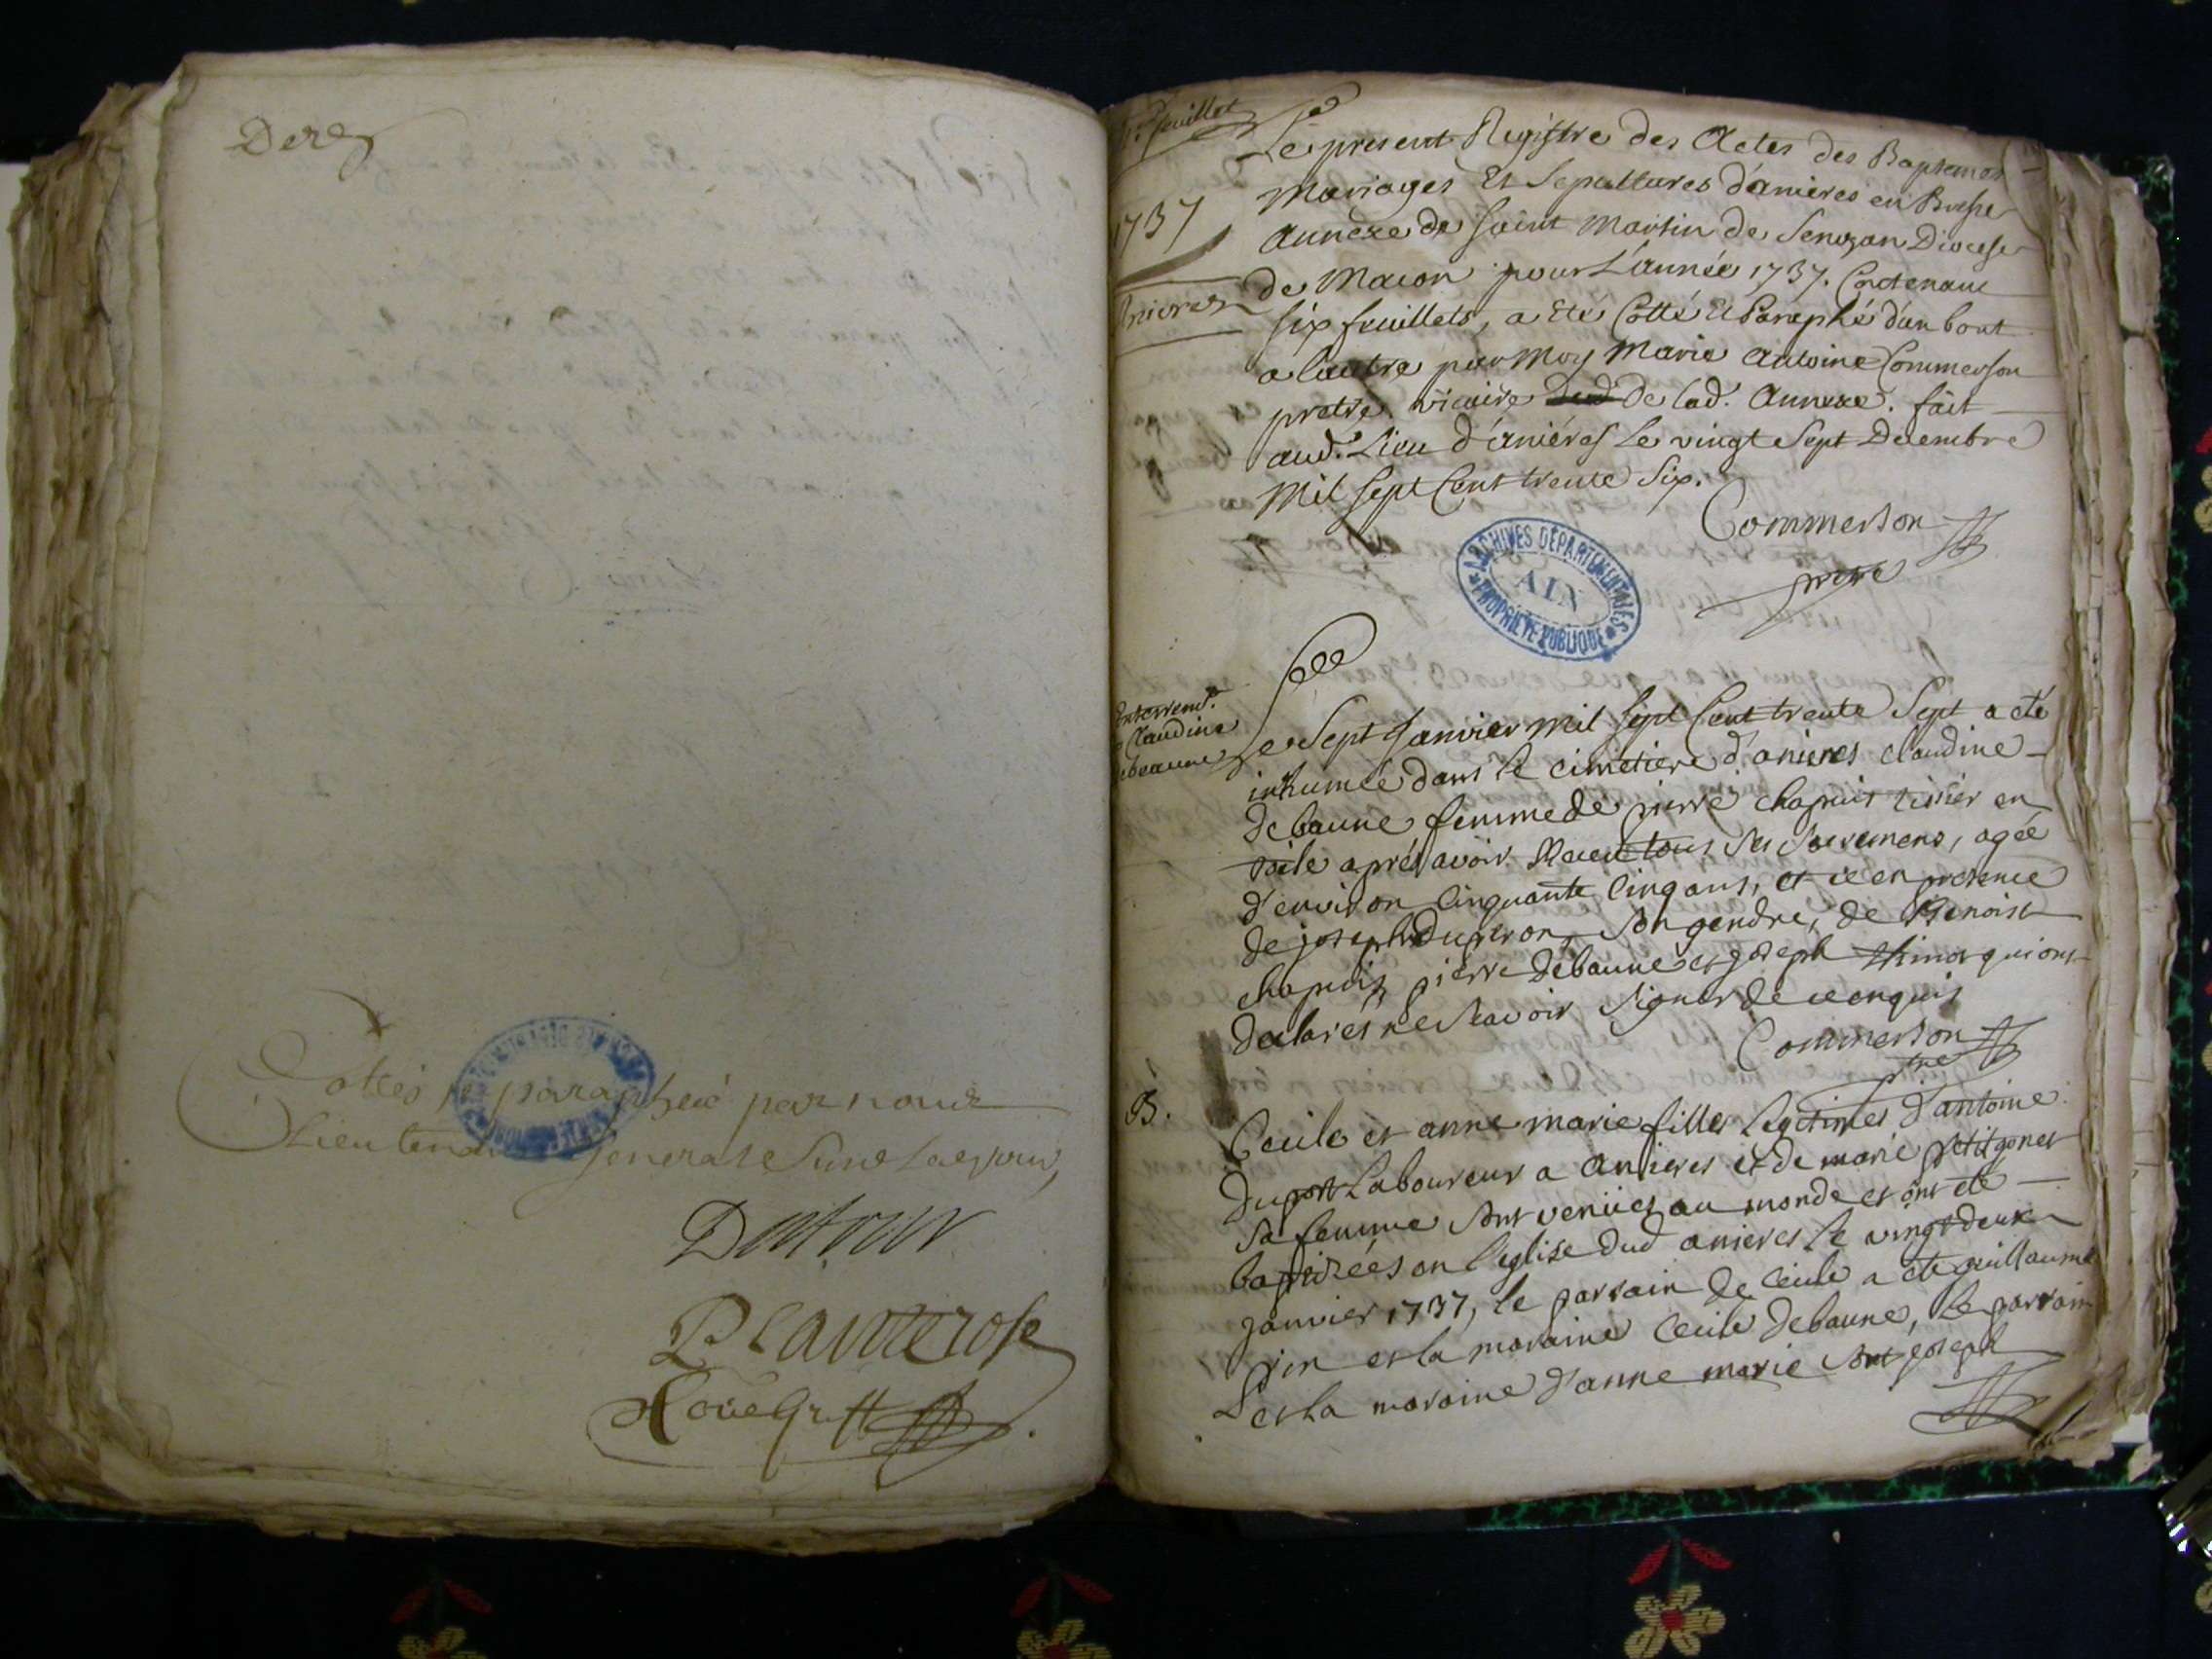 Der
Cottés et paraphéé par nous
Lieutenant General
1r. feuillet
1737
Anieres
Le present Registre des Actes des Baptemes
Mariages Et Sepultures d'anieres en Bresse
Annexe de Saint Martin de Senozan Diocese
de Macon pour L'année 1737. Contenant
six feuillets, a Eté Cotté Et Paraphé d'un bout
a l'autre par Moy Marie Antoine Commerson
pretre vicaire de lad. Annexe. fait
aud. Lieu d'aniéres le vingt Sept Decembre
Mil Sept Cent trente Six.
Commerson
pretre
ARCHIVES DÉPARTEMENTALES
AIN
PROPRIÉTÉ PUBLIQUE
Enterremt.
Claudine
debeaune
Le Sept Janvier mil Sept Cent trente Sept a eté
inhumée dans le cimetiere d'anieres claudine
debaune femme de pierre chapuis tissier en
toile aprés avoir Receu tous Ses Sacremens, agée
d'environ Cinquante Cinq ans, et ce en presence
de joseph Duperon, Son gendre, de Benoist
chapuis, pierre debaune et joseph qui ont
declarés ne Scavoir Signer de ce enquis
Commerson
ptre
B.
Cecile et anne marie filles Legitimes d'antoine
Duport Laboureur a Anieres et de marie petitgonet
Sa femme Sont venües au monde et ont eté
baptizées en l'eglise dud anieres le vingt deux
Janvier 1737, le parrain de Cecile a eté guillaume
et la maraine Cecile debaune, Le parrain
et La maraine d'anne marie Sont joseph